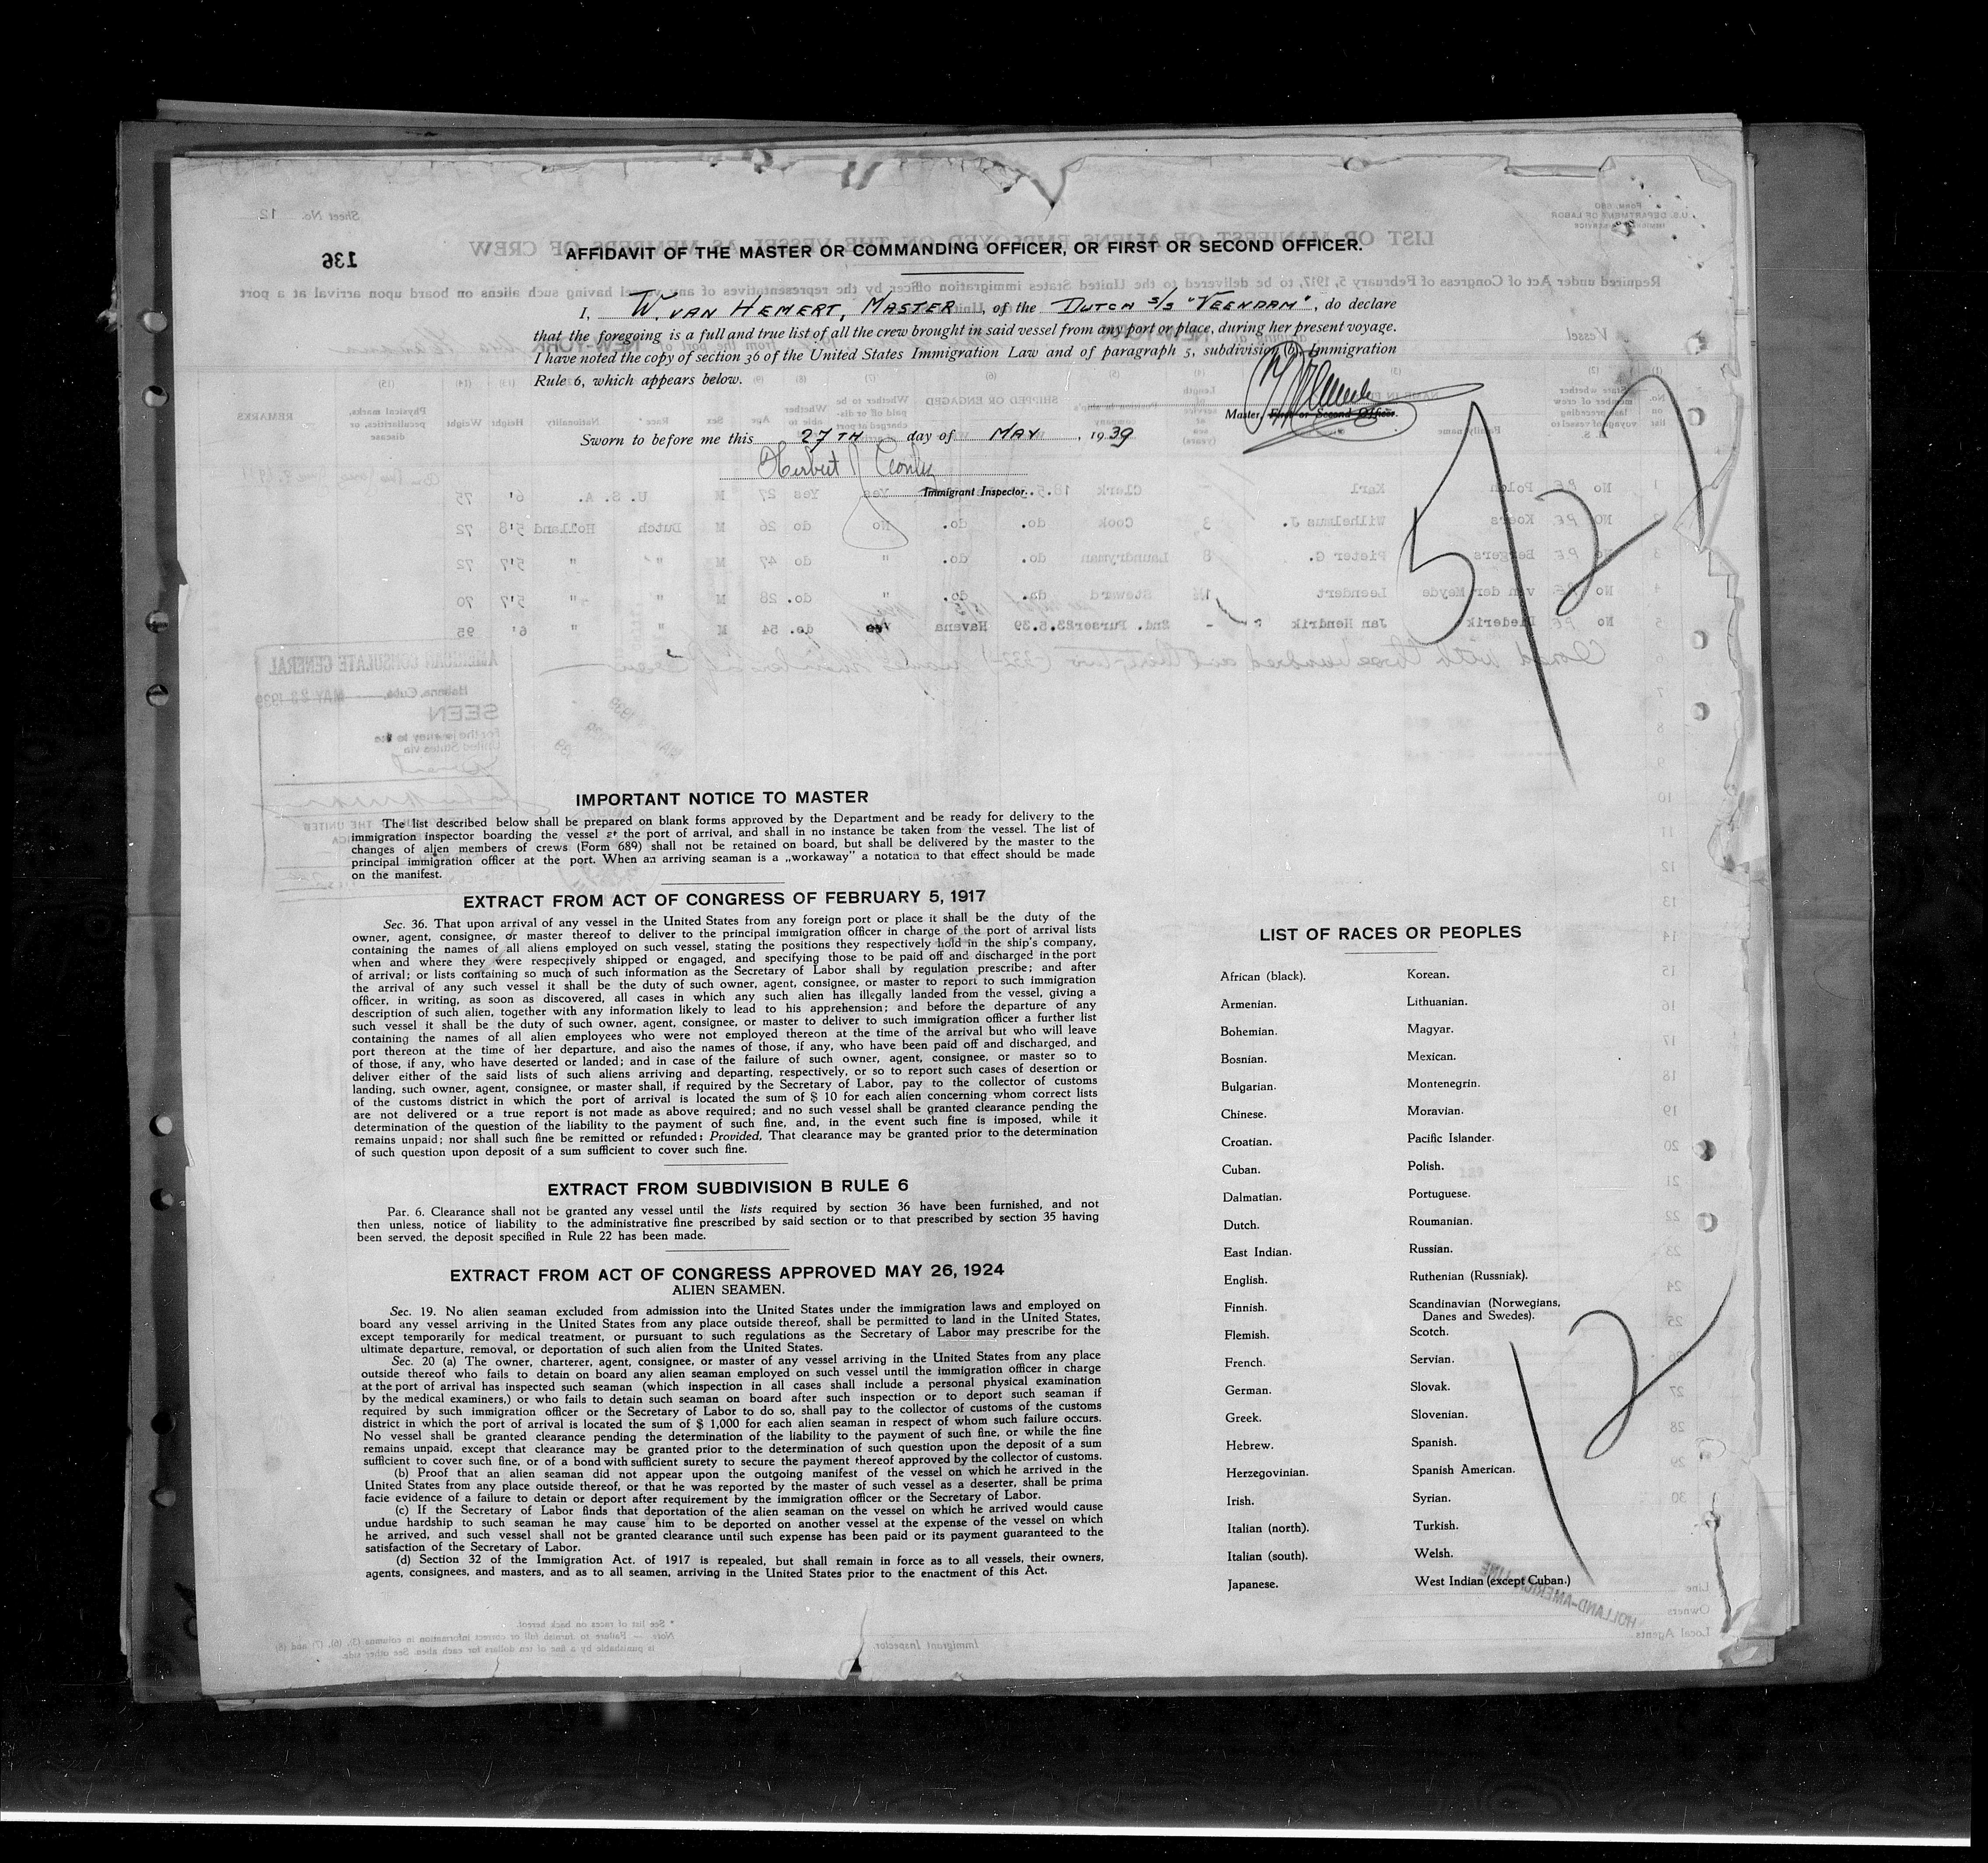 AFFIDAVIT OF THE MASTER OR COMMANDING OFFICER, OR FIRST OR SECOND OFFICER.
136
I, W. VAN HEMERT, MASTER, of the DUTCH S/S "VEENDAM", do declare
that the foregoing is a full and true list of all the crew brought in said vessel from any port or place, during her present voyage.
I have noted the copy of section 36 of the United States Immigration Law and of paragraph 5, subdivision (b), Immigration
Rule 6, which appears below.
Master, First or Second Officer.
Sworn to before me this 27TH day of MAY, 1939
Herbert J
Immigrant Inspector.
IMPORTANT NOTICE TO MASTER
The list described below shall be prepared on blank forms approved by the Department and be ready for delivery to the
immigration inspector boarding the vessel at the port of arrival, and shall in no instance be taken from the vessel. The list of
changes of alien members of crews (Form 689) shall not be retained on board, but shall be delivered by the master to the
principal immigration officer at the port. When an arriving seaman is a „workaway" a notation to that effect should be made
on the manifest.
EXTRACT FROM ACT OF CONGRESS OF FEBRUARY 5, 1917
Sec. 36. That upon arrival of any vessel in the United States from any foreign port or place it shall be the duty of the
owner, agent, consignee, or master thereof to deliver to the principal immigration officer in charge of the port of arrival lists
containing the names of all aliens employed on such vessel, stating the positions they respectively hold in the ship's company,
when and where they were respectively shipped or engaged, and specifying those to be paid off and discharged in the port
of arrival; or lists containing so much of such information as the Secretary of Labor shall by regulation prescribe; and after
the arrival of any such vessel it shall be the duty of such owner, agent, consignee, or master to report to such immigration
officer, in writing, as soon as discovered, all cases in which any such alien has illegally landed from the vessel, giving a
description of such alien, together with any information likely to lead to his apprehension; and before the departure of any
such vessel it shall be the duty of such owner, agent, consignee, or master to deliver to such immigration officer a further list
containing the names of all alien employees who were not employed thereon at the time of the arrival but who will leave
port thereon at the time of her departure, and also the names of those, if any, who have been paid off and discharged, and
of those, if any, who have deserted or landed; and in case of the failure of such owner, agent, consignee, or master so to
deliver either of the said lists of such aliens arriving and departing, respectively, or so to report such cases of desertion or
landing, such owner, agent, consignee, or master shall, if required by the Secretary of Labor, pay to the collector of customs
of the customs district in which the port of arrival is located the sum of $ 10 for each alien concerning whom correct lists
are not delivered or a true report is not made as above required; and no such vessel shall be granted clearance pending the
determination of the question of the liability to the payment of such fine, and, in the event such fine is imposed, while it
remains unpaid; nor shall such fine be remitted or refunded: Provided, That clearance may be granted prior to the determination
of such question upon deposit of a sum sufficient to cover such fine.
EXTRACT FROM SUBDIVISION B RULE 6
Par. 6. Clearance shall not be granted any vessel until the lists required by section 36 have been furnished, and not
then unless, notice of liability to the administrative fine prescribed by said section or to that prescribed by section 35 having
been served, the deposit specified in Rule 22 has been made.
EXTRACT FROM ACT OF CONGRESS APPROVED MAY 26, 1924
ALIEN SEAMEN.
Sec. 19. No alien seaman excluded from admission into the United States under the immigration laws and employed on
board any vessel arriving in the United States from any place outside thereof, shall be permitted to land in the United States,
except temporarily for medical treatment, or pursuant to such regulations as the Secretary of Labor may prescribe for the
ultimate departure, removal, or deportation of such alien from the United States.
Sec. 20 (a) The owner, charterer, agent, consignee, or master of any vessel arriving in the United States from any place
outside thereof who fails to detain on board any alien seaman employed on such vessel until the immigration officer in charge
at the port of arrival has inspected such seaman (which inspection in all cases shall include a personal physical examination
by the medical examiners,) or who fails to detain such seaman on board after such inspection or to deport such seaman if
required by such immigration officer or the Secretary of Labor to do so, shall pay to the collector of customs of the customs
district in which the port of arrival is located the sum of $ 1,000 for each alien seaman in respect of whom such failure occurs.
No vessel shall be granted clearance pending the determination of the liability to the payment of such fine, or while the fine
remains unpaid, except that clearance may be granted prior to the determination of such question upon the deposit of a sum
sufficient to cover such fine, or of a bond with sufficient surety to secure the payment thereof approved by the collector of customs.
(b) Proof that an alien seaman did not appear upon the outgoing manifest of the vessel on which he arrived in the
United States from any place outside thereof, or that he was reported by the master of such vessel as a deserter, shall be prima
facie evidence of a failure to detain or deport after requirement by the immigration officer or the Secretary of Labor.
(c) If the Secretary of Labor finds that deportation of the alien seaman on the vessel on which he arrived would cause
undue hardship to such seaman he may cause him to be deported on another vessel at the expense of the vessel on which
he arrived, and such vessel shall not be granted clearance until such expense has been paid or its payment guaranteed to the
satisfaction of the Secretary of Labor.
(d) Section 32 of the Immigration Act, of 1917 is repealed, but shall remain in force as to all vessels, their owners,
agents, consignees, and masters, and as to all seamen, arriving in the United States prior to the enactment of this Act.
LIST OF RACES OR PEOPLES
African (black).
Armenian.
Bohemian.
Bosnian.
Bulgarian.
Chinese.
Croatian.
Cuban.
Dalmatian.
Dutch.
East Indian.
English.
Finnish.
Flemish.
French.
German.
Greek.
Hebrew.
Herzegovinian.
Irish.
Italian (north).
Italian (south).
Japanese.
Korean.
Lithuanian.
Magyar.
Mexican.
Montenegrin.
Moravian.
Pacific Islander.
Polish.
Portuguese.
Roumanian.
Russian.
Ruthenian (Russniak).
Scandinavian (Norwegians,
Danes and Swedes).
Scotch.
Servian.
Slovak.
Slovenian.
Spanish.
Spanish American.
Syrian.
Turkish.
Welsh.
West Indian (except Cuban.)
HOLLAND-AMERICA LINE